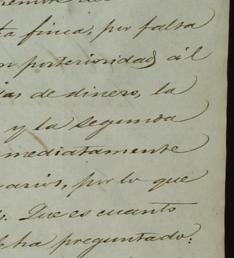 ta finca, por falta
n posterioridad ál
as de dinero, la
y la segunda
mediatamente
arios, por lo que
Que es cuanto
cha preguntado: